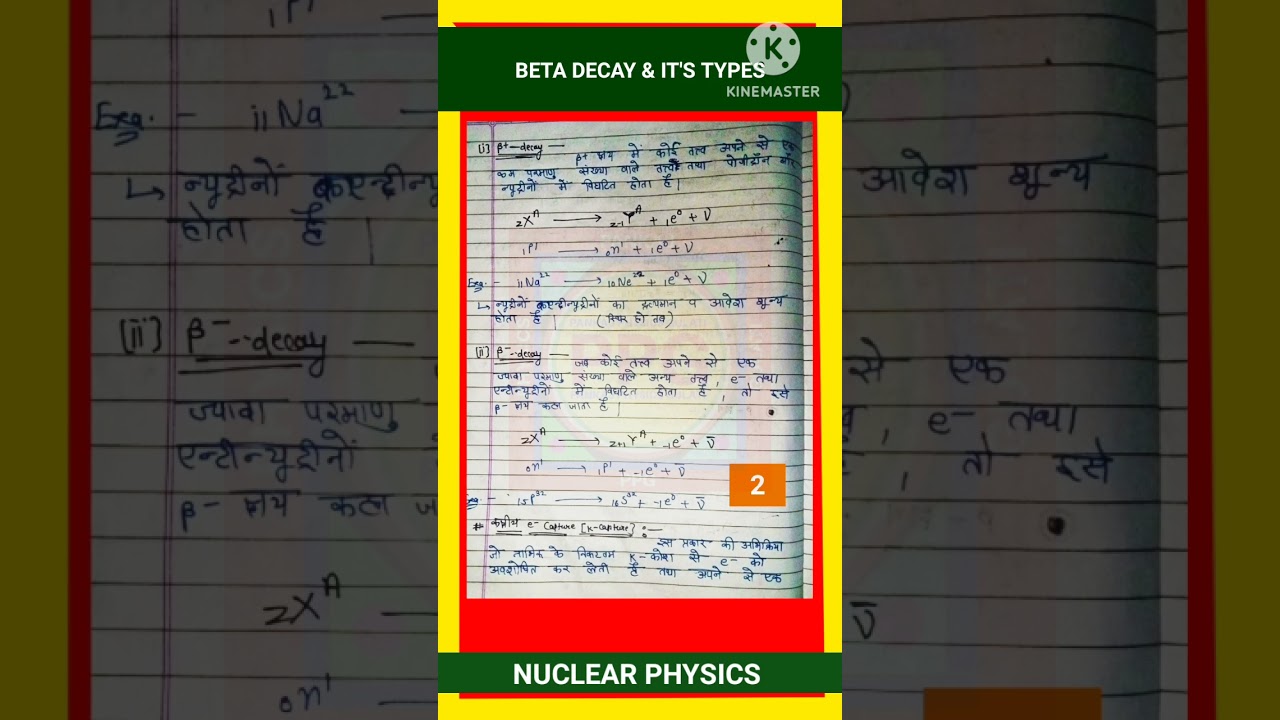 BETA DECAY & IT'S TYPES
KINEMASTER
(i) β+-decay —
β+ क्षय में कोई तत्व अपने से एक
कम परमाणु संख्या वाले तत्वों तथा पोजीट्रॉन और
न्यूट्रीनों में विघटित होता है।
zXᴬ ⟶ z-1Yᴬ + ₁e⁰ + ν
₁P¹ ⟶ ₀n¹ + ₁e⁰ + ν
Exa. - ₁₁Na²² ⟶ ₁₀Ne²² + ₁e⁰ + ν
↳ न्यूट्रीनों व एन्टीन्यूट्रीनों का द्रव्यमान व आवेश शून्य
होता है। (स्थिर हो तब)
(ii) β⁻-decay — जब कोई तत्व अपने से एक
ज्यादा परमाणु संख्या वाले अन्य तत्व, e- तथा
एन्टीन्यूट्रीनों में विघटित होता है, तो इसे
β- क्षय कहा जाता है।
zXᴬ ⟶ z+1Yᴬ + ₋₁e⁰ + ν̄
₀n¹ ⟶ ₁P¹ + ₋₁e⁰ + ν̄
2
Exa. - ₁₅P³² ⟶ ₁₆S³² + ₋₁e⁰ + ν̄
# कक्षीय e- capture [K-capture] :-
इस प्रकार की अभिक्रिया
जो नाभिक के निकटतम K-कोश से e- को
अवशोषित कर लेती है तथा अपने से एक
NUCLEAR PHYSICS